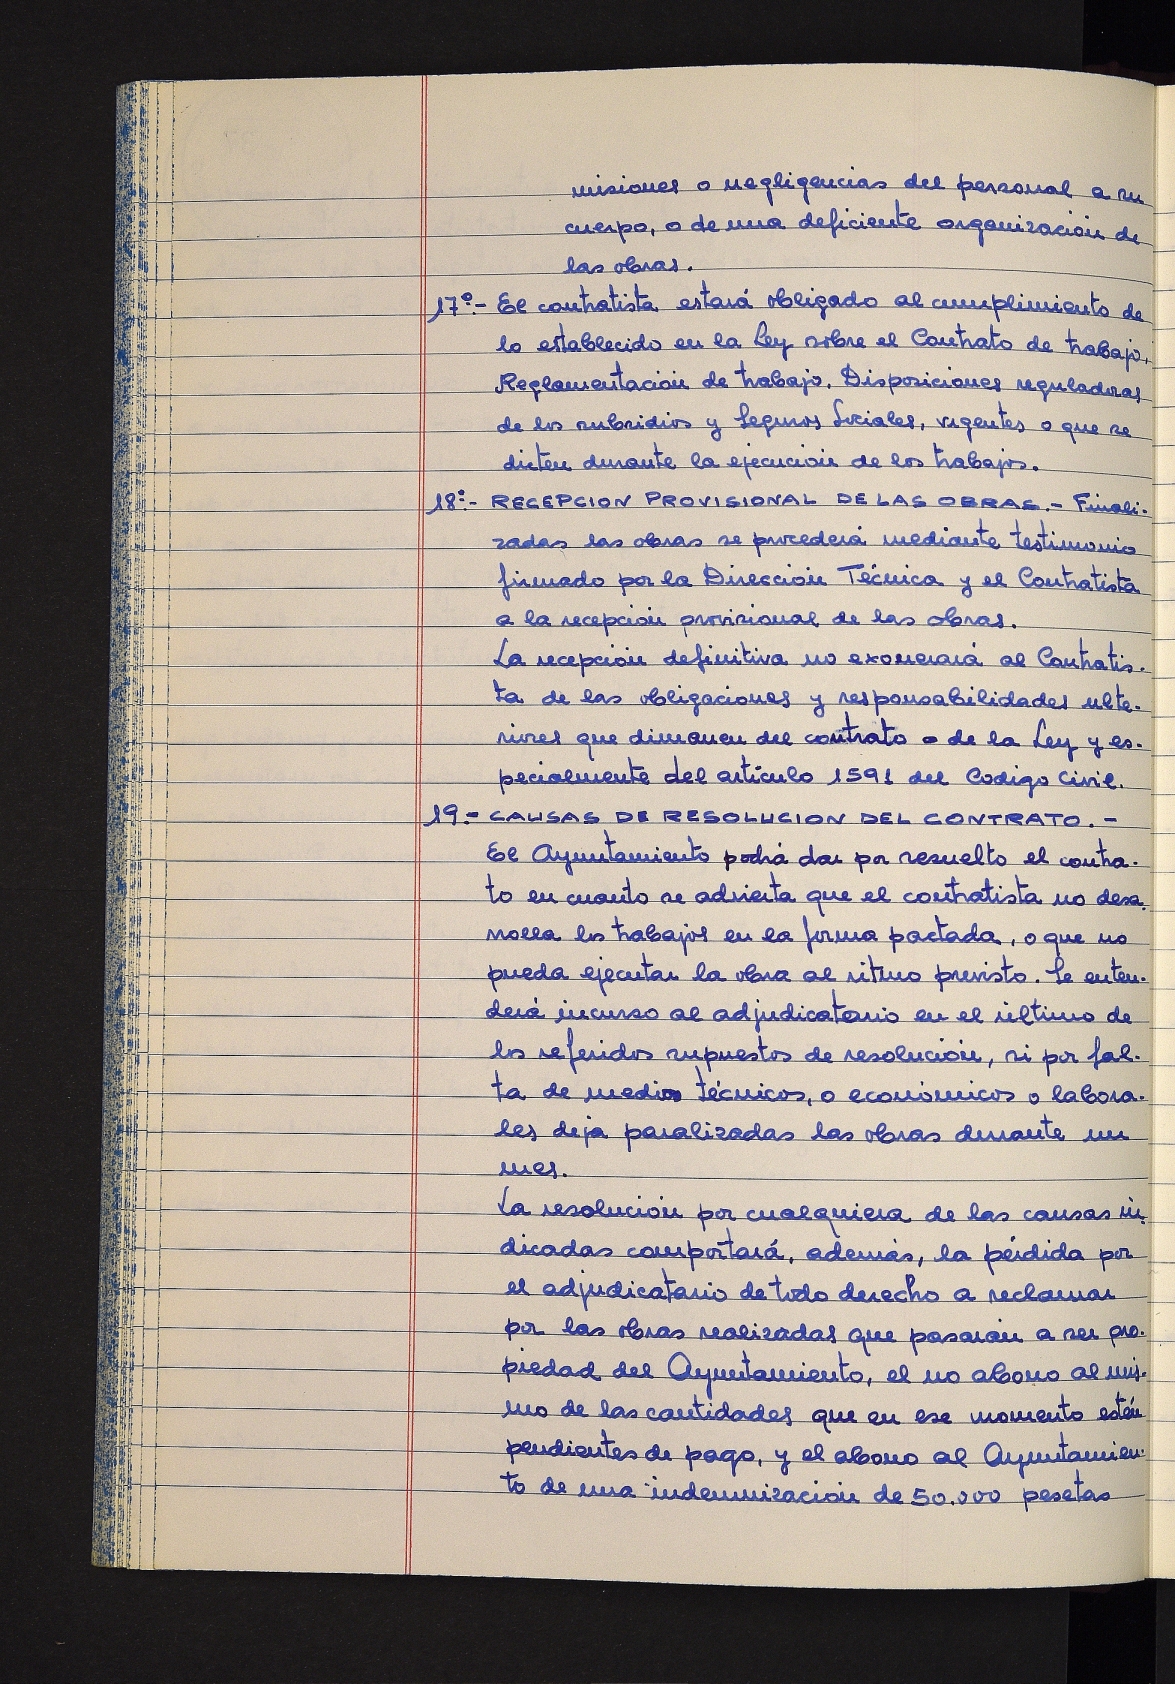 misiones o negligencias del personal a su
cuerpo, o de una deficiente organización de
las obras.
17º.- El contratista estará obligado al cumplimiento de
lo establecido en la Ley sobre el Contrato de trabajo,
Reglamentación de trabajo, Disposiciones reguladoras
de los subsidios y Seguros Sociales, vigentes o que se
dicten durante la ejecución de los trabajos.
18º.- RECEPCION PROVISIONAL DE LAS OBRAS.- Finali-
zadas las obras se procederá mediante testimonio
firmado por la Dirección Técnica y el Contratista
a la recepción provisional de las obras.
La recepción definitiva no exonerará al Contratis-
ta de las obligaciones y responsabilidades ulte-
riores que dimanen del contrato o de la Ley y es-
pecialmente del artículo 1591 del Codigo Civil.
19.- CAUSAS DE RESOLUCION DEL CONTRATO.-
El Ayuntamiento podrá dar por resuelto el contra-
to en cuanto se advierta que el contratista no desa-
rrolla los trabajos en la forma pactada, o que no
pueda ejecutar la obra al ritmo previsto. Se enten-
derá incurso al adjudicatario en el último de
los referidos supuestos de resolución, si por fal-
ta de medios técnicos, o económicos o labora-
les deja paralizadas las obras durante un
mes.
La resolución por cualquiera de las causas in-
dicadas comportará, además, la pérdida por
el adjudicatario de todo derecho a reclamar
por las obras realizadas que pasarán a ser pro-
piedad del Ayuntamiento, el no abono al mis-
mo de las cantidades que en ese momento estén
pendientes de pago, y el abono al Ayuntamien-
to de una indemnización de 50.000 pesetas